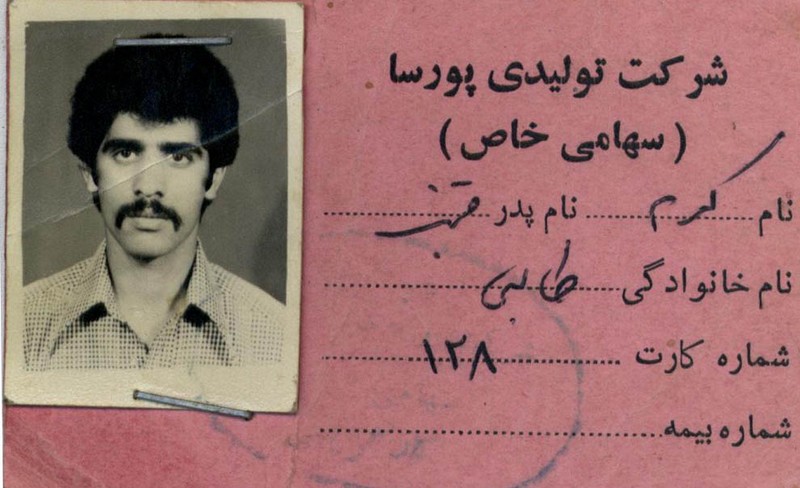 شرکت تولیدی پورسا
(سهامی خاص)
نام کرم نام پدر
نام خانوادگی طالبی
شماره کارت ۱۲۸
شماره بیمه